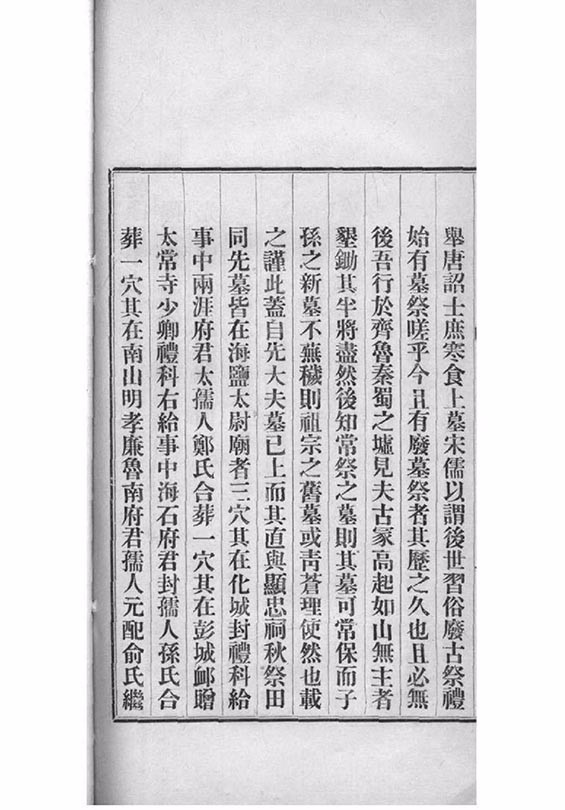 舉唐詔士庶寒食上墓宋儒以謂後世習俗廢古祭禮
始有墓祭嗟乎今且有廢墓祭者其歷之久也且必無
後吾行於齊魯秦蜀之墟見夫古冢高起如山無主者
墾鋤其半將盡然後知常祭之墓則其墓可常保而子
孫之新墓不蕪穢則祖宗之舊墓或靑蒼理使然也載
之謹此蓋自先大夫墓已上而其直與顯忠祠秋祭田
同先墓皆在海鹽太尉廟者三穴其在化城封禮科給
事中兩涯府君太孺人鄭氏合葬一穴其在彭城邮贈
太常寺少卿禮科右給事中海石府君封孺人孫氏合
葬一穴其在南山明孝廉魯南府君孺人元配俞氏繼